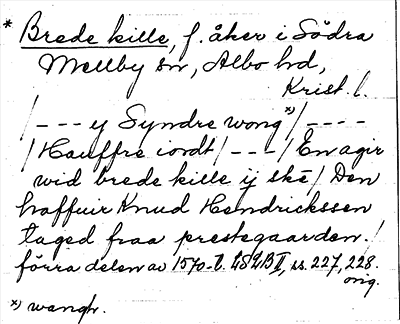 * Brede kille, f. åker i Södra
Mellby sn, Albo hd,
Krist. l.
/--- y Syndre wong*)/----
/Hauffre iordt/---/En agir
wid brede kille ij skē/Den
haffuir Knud Hendrickssen
taged fraa prestegaarden./
förra delen av 1570-t. LSLB II, ss. 227, 228.
orig.
*) wangh.